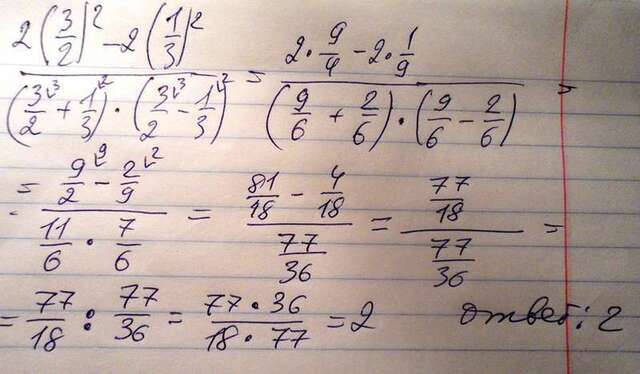 2(3/2)² - 2(1/3)² / (3/2 ³ + 1/3 ²) · (3/2 ³ - 1/3 ²) = 2 · 9/4 - 2 · 1/9 / (9/6 + 2/6) · (9/6 - 2/6) =
= 9/2 ⁹ - 2/9 ² / 11/6 · 7/6 = 81/18 - 4/18 / 77/36 = 77/18 / 77/36 =
= 77/18 : 77/36 = 77 · 36 / 18 · 77 = 2 ответ: 2